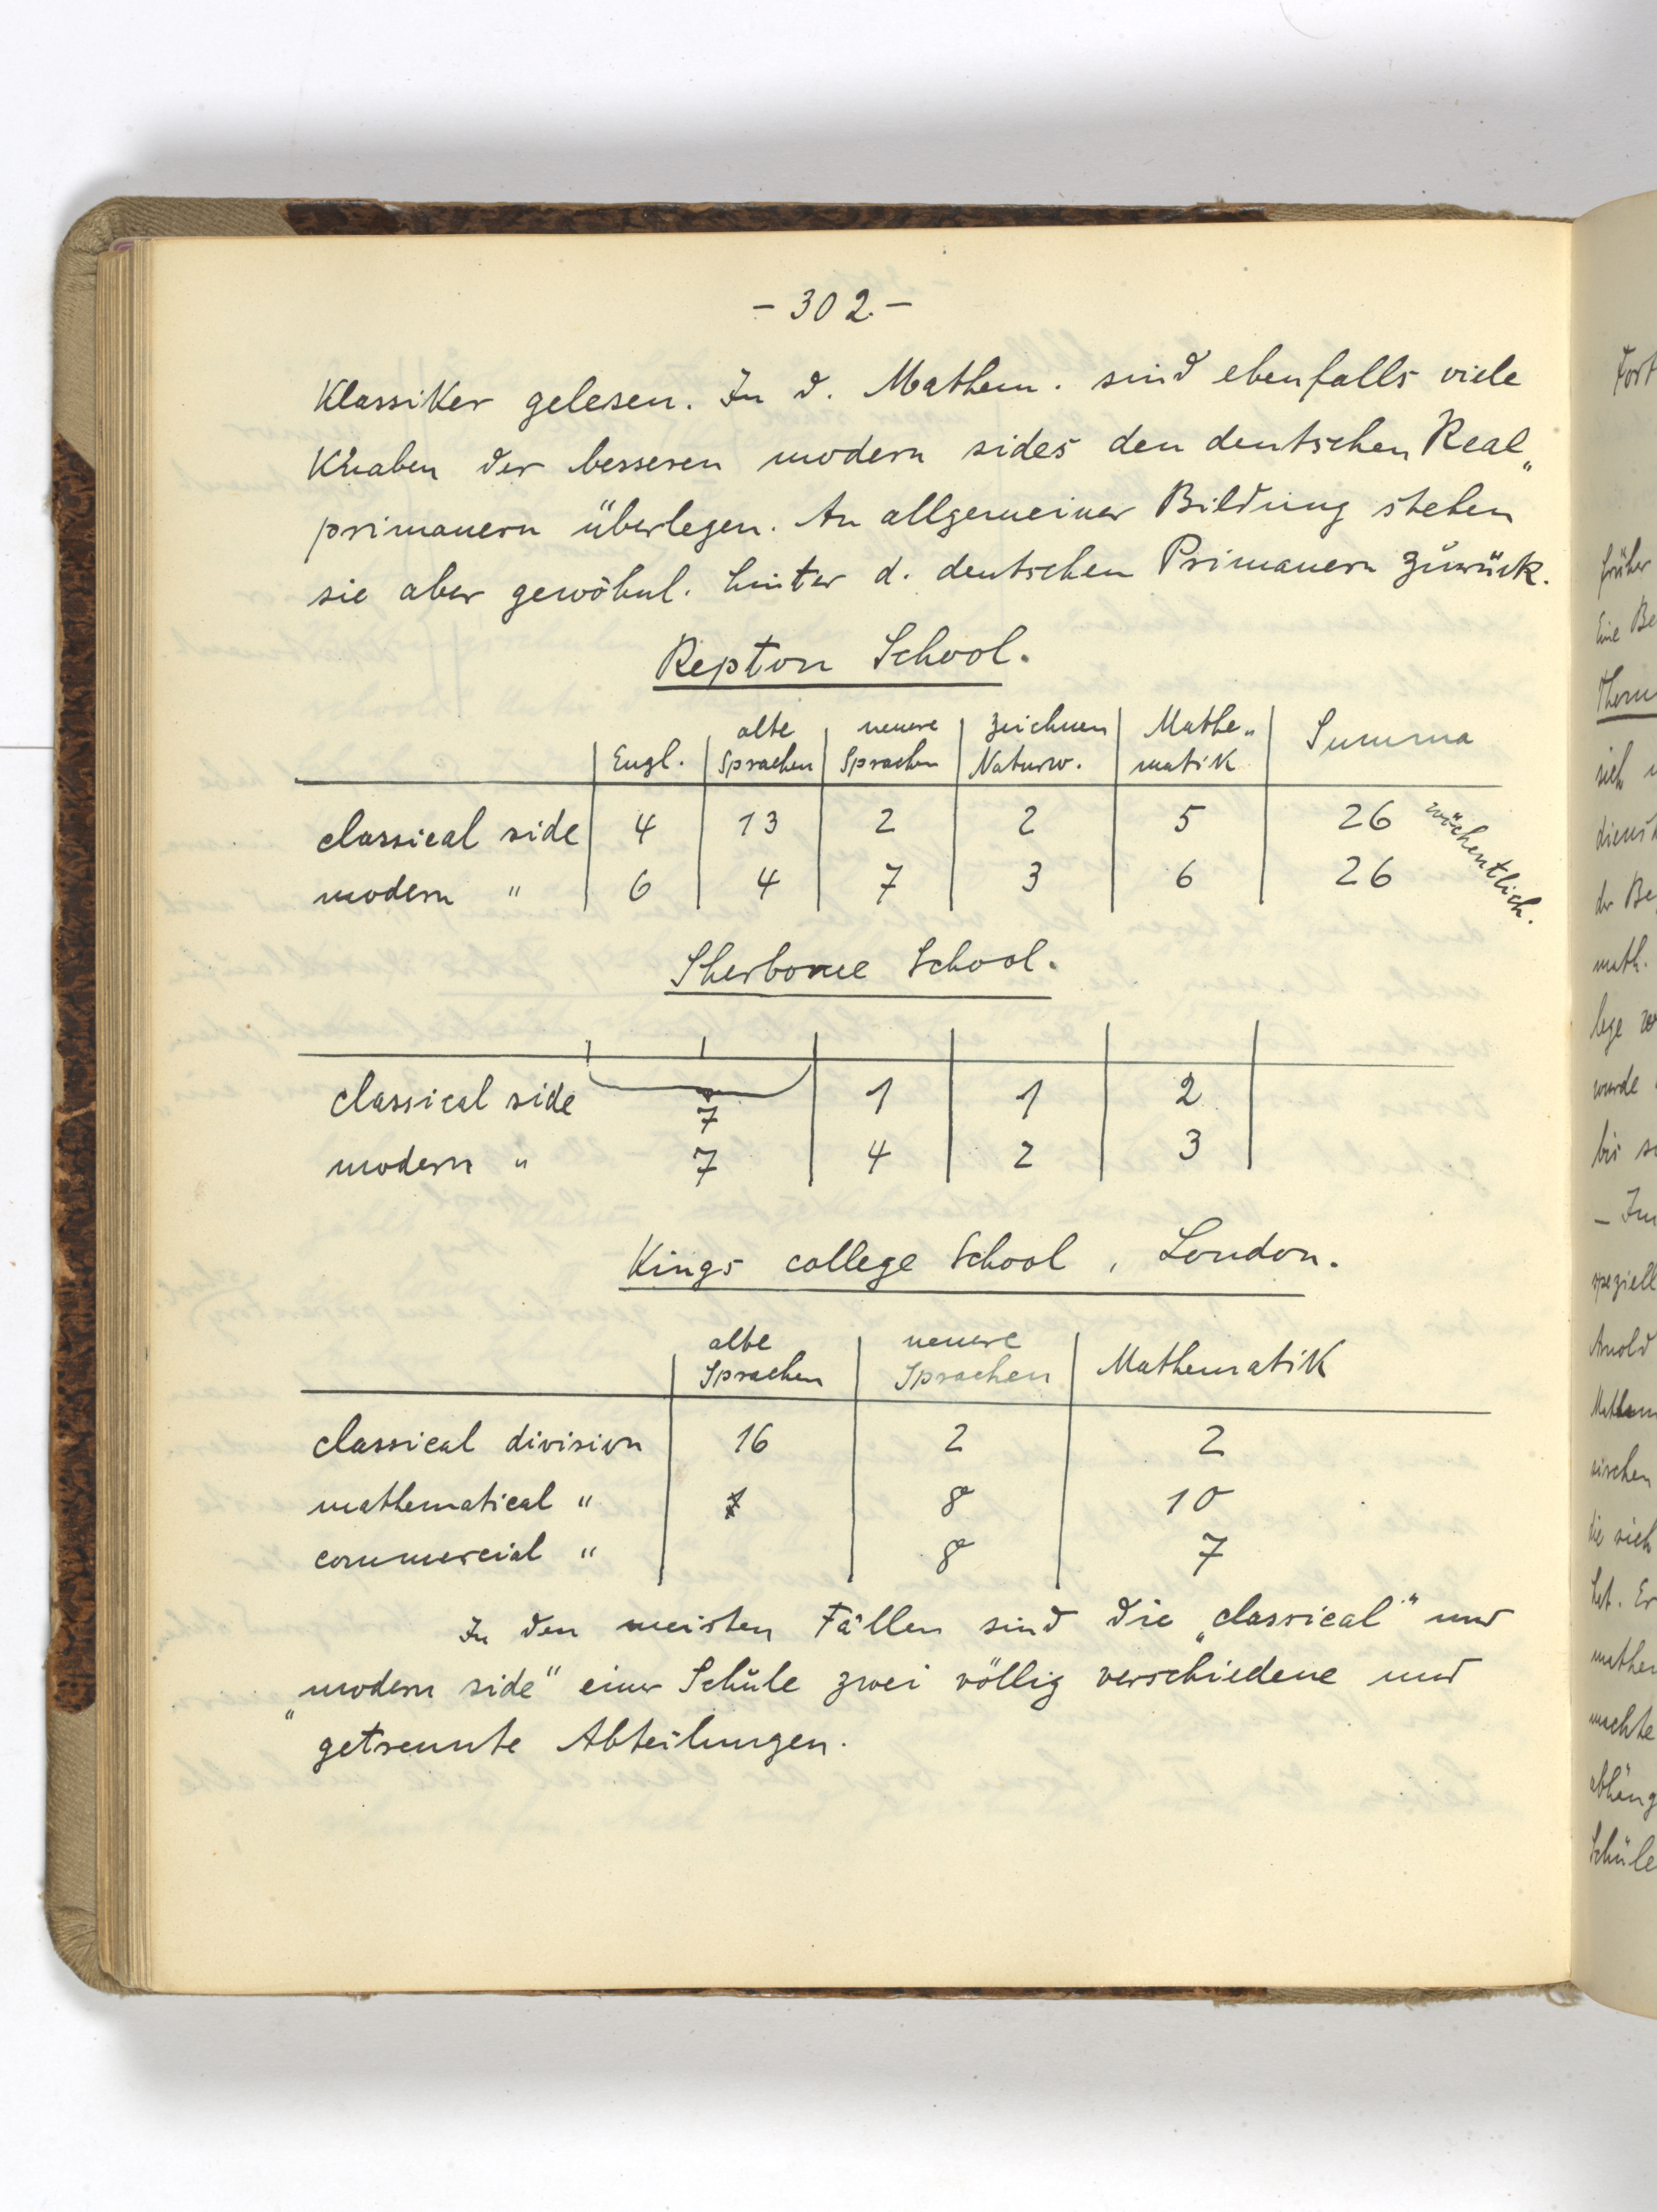 - 302. -
Klassiker gelesen. In d. Mathem. sind ebenfalls viele
Knaben der besseren modern sides den deutschen Real„
primanern überlegen. An allgemeiner Bildung stehen
sie aber gewöhnl. hinter d. deutschen Primanern zurück.
Repton School.
Engl. | alte Sprachen | neuere Sprachen | Zeichnen Naturw. | Mathe„ matik | Summa
classical side | 4 | 13 | 2 | 2 | 5 | 26 wöchentlich.
modern " | 6 | 4 | 7 | 3 | 6 | 26
Sherborne School.
classical side 7 | 1 | 1 | 2
modern " 7 | 4 | 2 | 3
Kings college School, London.
alte Sprachen | neuere Sprachen | Mathematik
classical division | 16 | 2 | 2
mathematical " | | 8 | 10
commercial " | | 8 | 7
In den meisten Fällen sind die „classical“ und
„modern side“ einer Schule zwei völlig verschiedene und
getrennte Abteilungen.
Fort
früher
Eine Be
sich
der Be
math.
lege
wurde
speziell
Arnold
die sich
machte
abhäng
Schule